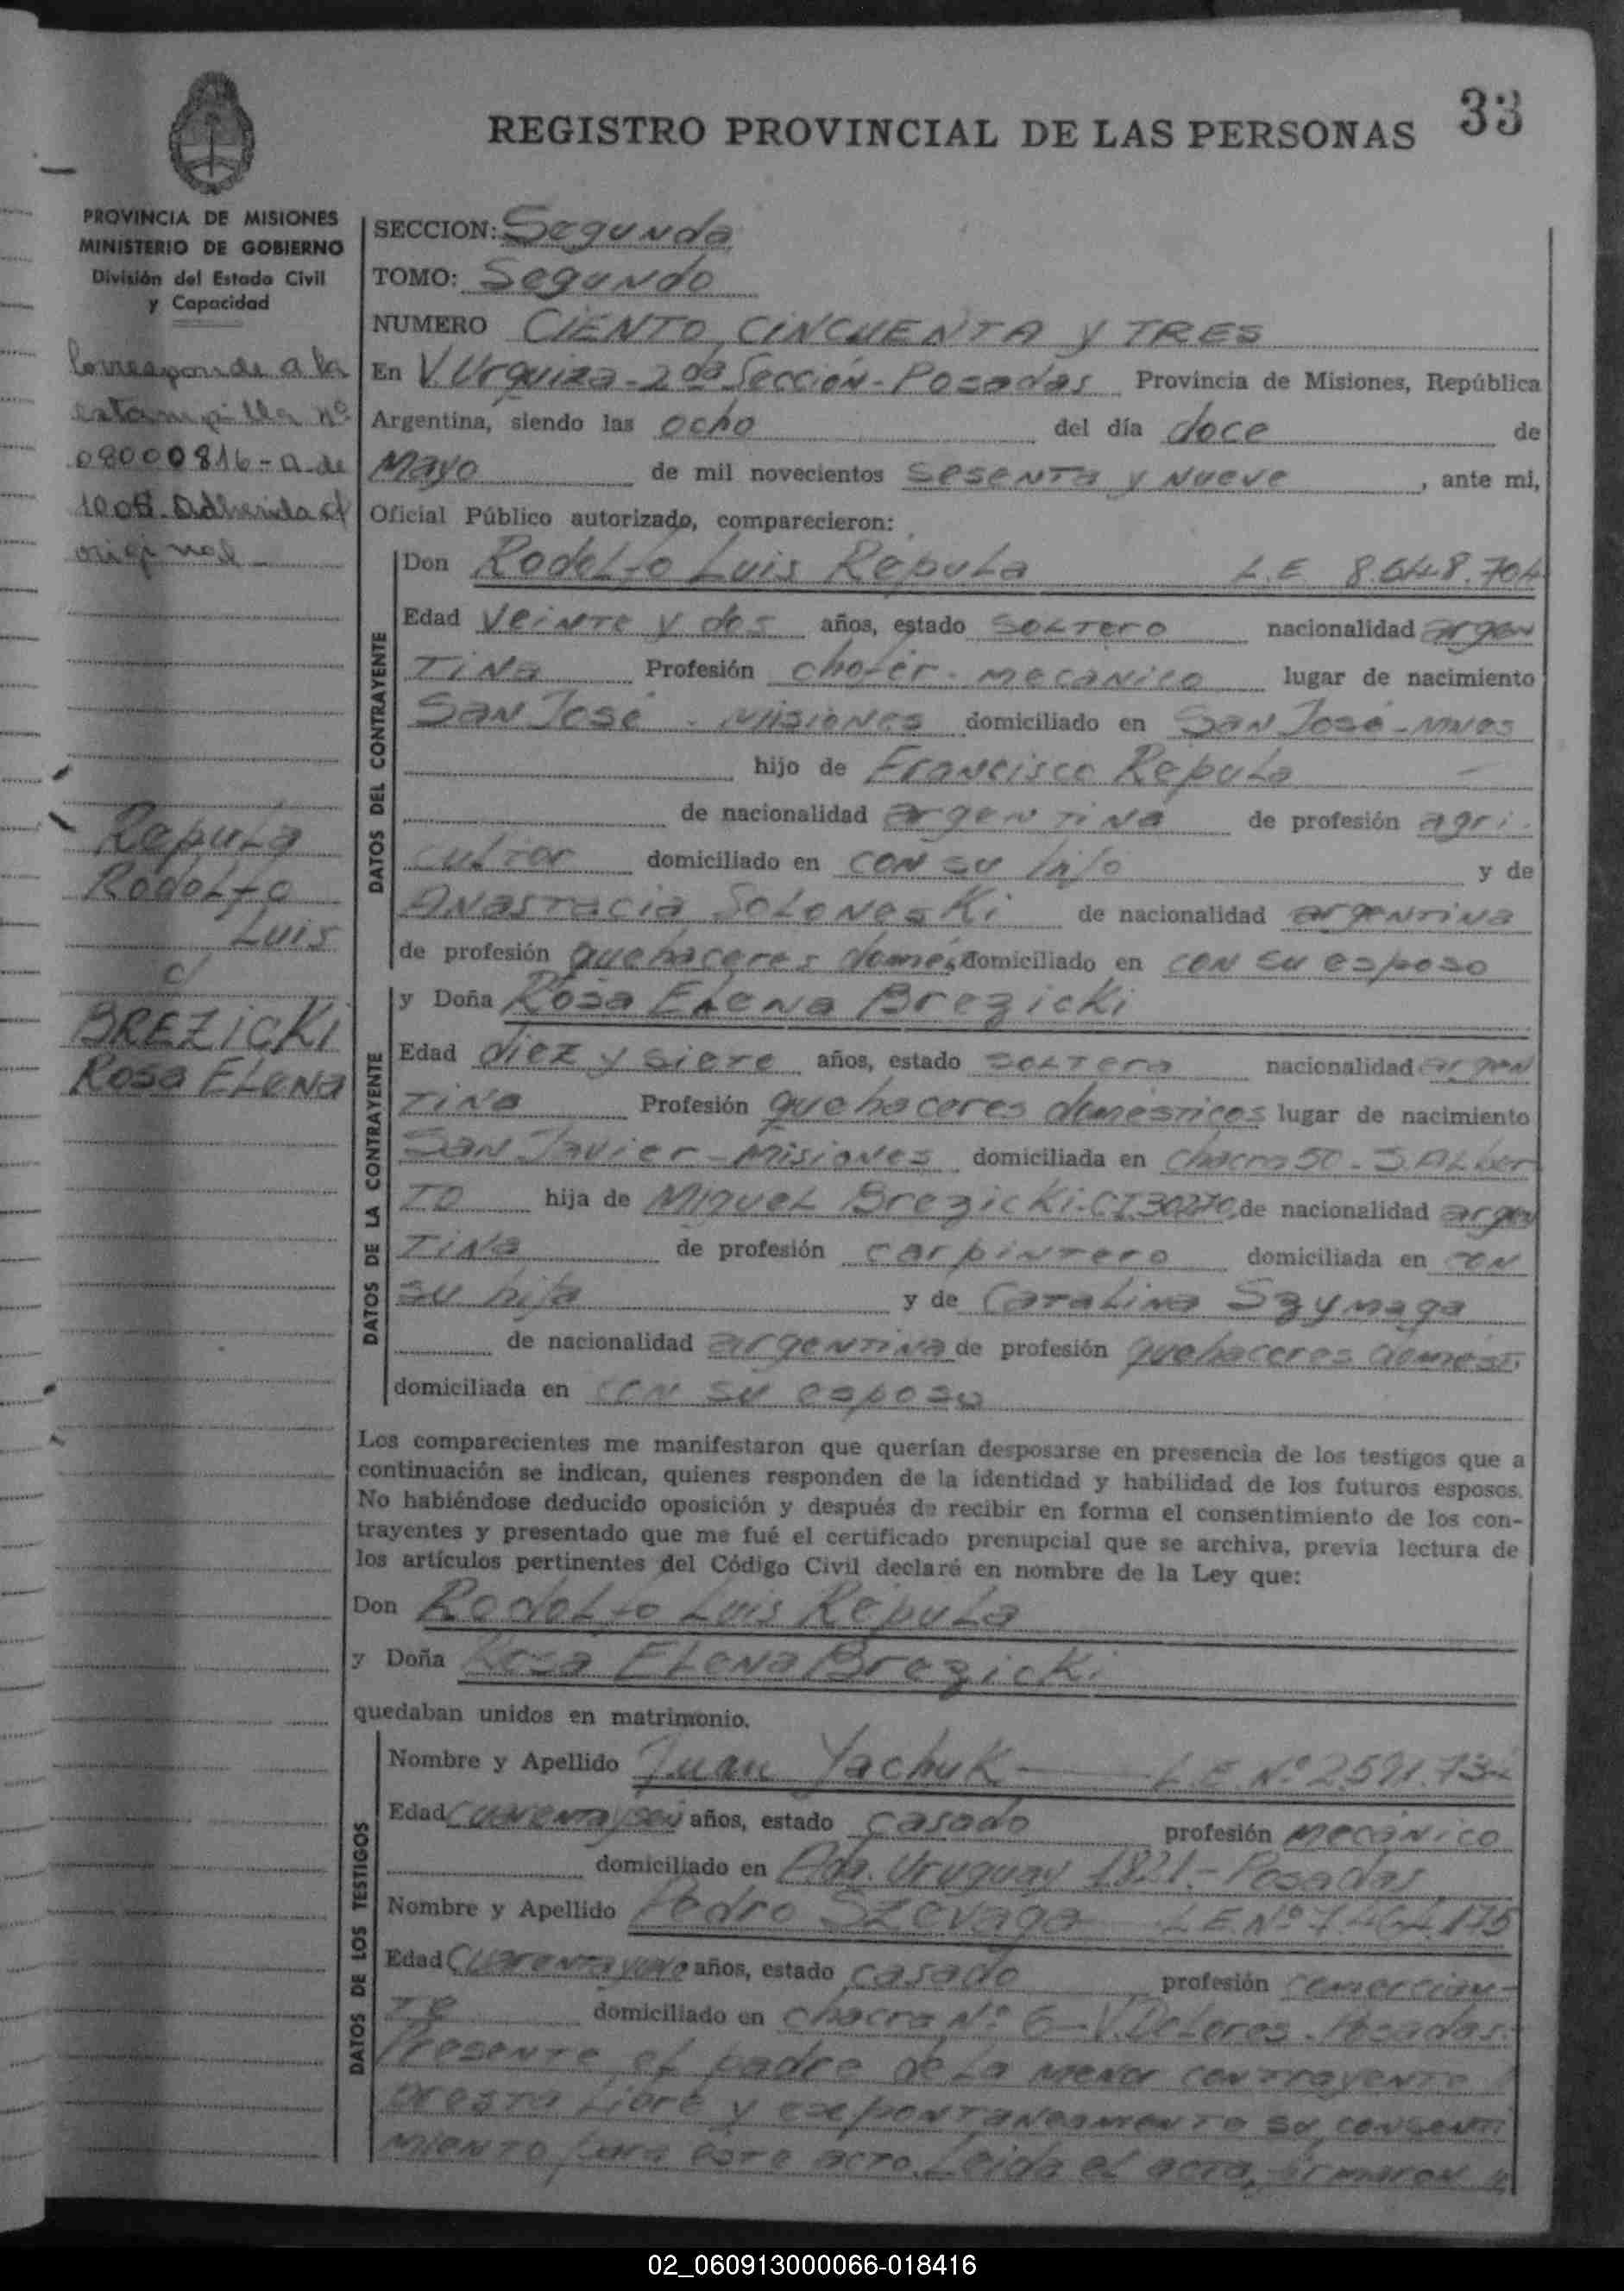 33
REGISTRO PROVINCIAL DE LAS PERSONAS
PROVINCIA DE MISIONES
MINISTERIO DE GOBIERNO
División del Estado Civil
y Capacidad
Corresponde a la
estampilla nº
08000816-a de
1008. Adherida al
original
Repula
Rodolfo
Luis
c/
BREZICKI
Rosa ELENA
SECCION: Segunda
TOMO: Segundo
NUMERO CIENTO CINCUENTA y TRES
En V. Urquiza - 2da Sección - Posadas Provincia de Misiones, República
Argentina, siendo las ocho del día doce de
Mayo de mil novecientos sesenta y nueve, ante mi,
Oficial Público autorizado, comparecieron:
DATOS DEL CONTRAYENTE
Don Rodolfo Luis Repula L.E 8.648.704
Edad veinte y dos años, estado soltero nacionalidad argen
tina Profesión chofer-mecánico lugar de nacimiento
San José - Misiones domiciliado en San José - Mnes
hijo de Francisco Repula
de nacionalidad argentina de profesión agri-
cultor domiciliado en con su hijo y de
Anastacia Soloneski de nacionalidad argentina
de profesión quehaceres domés. domiciliado en con su esposo
DATOS DE LA CONTRAYENTE
y Doña Rosa Elena Brezicki
Edad diez y siete años, estado soltera nacionalidad argen
tina Profesión quehaceres domésticos lugar de nacimiento
San Javier - Misiones domiciliada en chacra 50 - S. Alber
to hija de Miguel Brezicki - CI 30270, de nacionalidad argen
tina de profesión carpintero domiciliada en con
su hija y de Catalina Szymaga
de nacionalidad argentina de profesión quehaceres domést.
domiciliada en con su esposo
Los comparecientes me manifestaron que querían desposarse en presencia de los testigos que a
continuación se indican, quienes responden de la identidad y habilidad de los futuros esposos.
No habiéndose deducido oposición y después de recibir en forma el consentimiento de los con-
trayentes y presentado que me fué el certificado prenupcial que se archiva, previa lectura de
los artículos pertinentes del Código Civil declaré en nombre de la Ley que:
Don Rodolfo Luis Repula
y Doña Rosa Elena Brezicki
quedaban unidos en matrimonio.
DATOS DE LOS TESTIGOS
Nombre y Apellido Juan Yachuk L.E. Nº 2.591.734
Edad cuarenta y seis años, estado casado profesión mecánico
domiciliado en Avda. Uruguay 1821 - Posadas
Nombre y Apellido Pedro Szevaga L.E Nº 7.464.175
Edad cuarenta y uno años, estado casado profesión comercian-
te domiciliado en chacra Nº 6 - V. Dolores. Posadas.
Presente el padre de la menor contrayente
presta libre y expontaneamente su consenti
miento para este acto. Leida el acta, firmaron
02_060913000066-018416